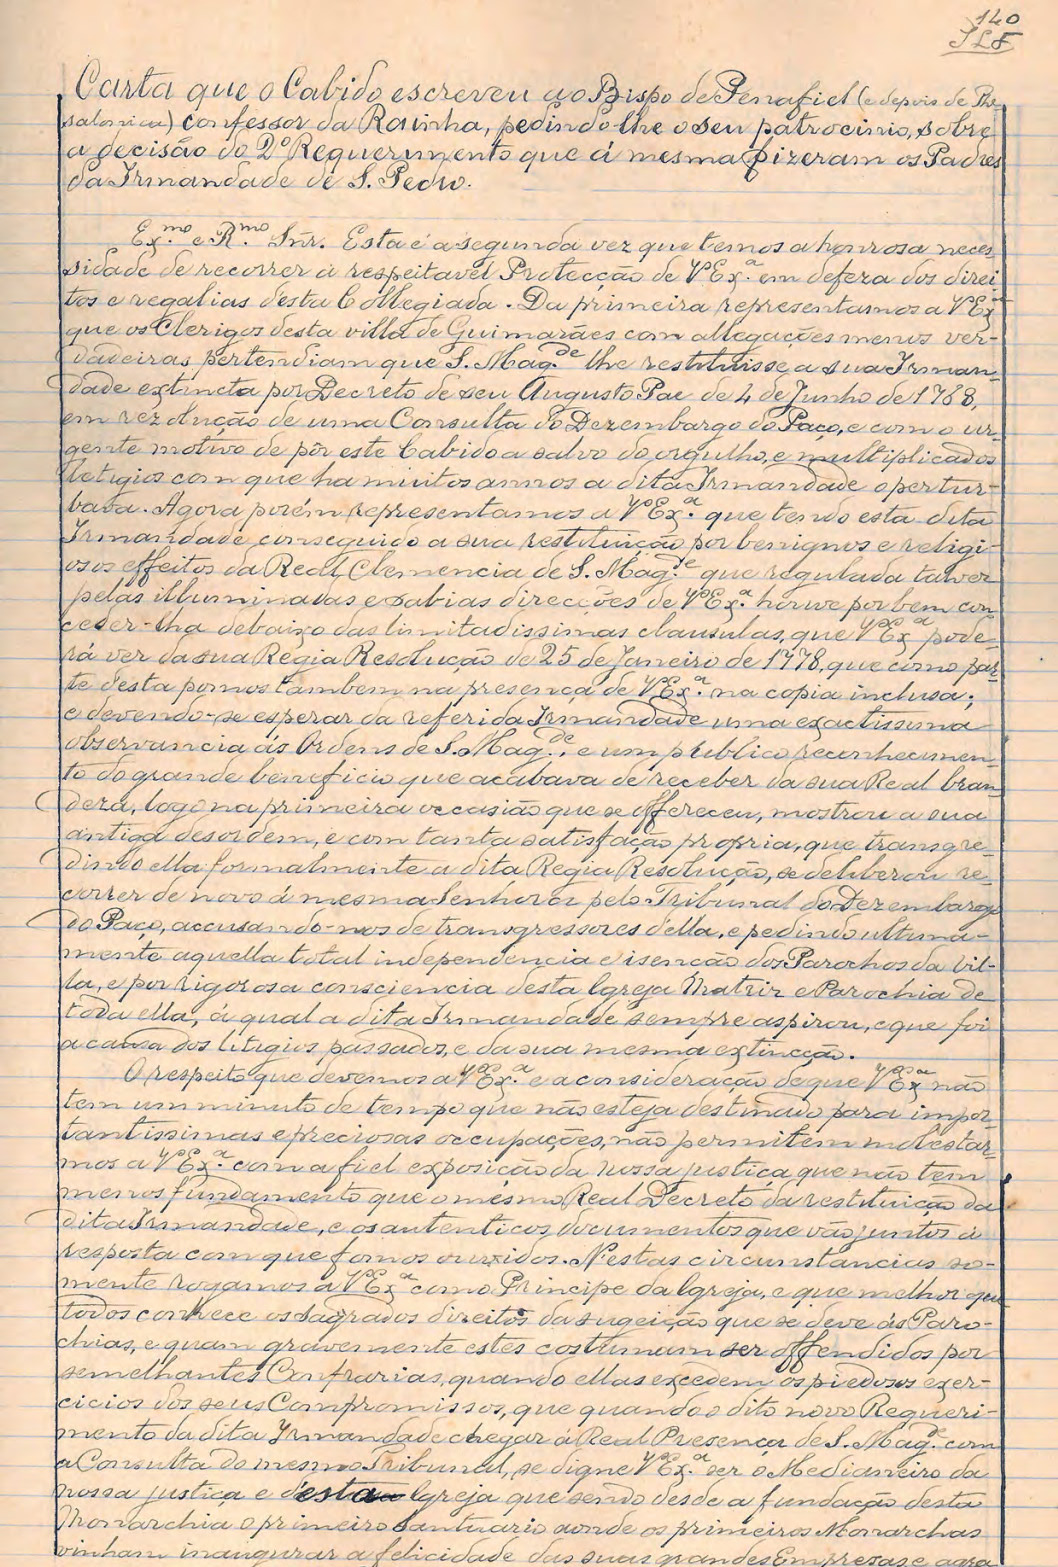 140
SLF
Carta que o Cabido escreveu ao Bispo de Penafiel (e depois de Thes
salonica) confessor da Rainha, pedindo-lhe o seu patrocinio, sobre
a decisão do 2º Requerimento que á mesma fizeram os Padres
da Irmandade de S. Pedro.
Ex.mo e R.mo Snr. Esta é a segunda vez que temos a honrosa neces
sidade de recorrer á respeitavel Protecção de VEx.a em defeza dos direi
tos e regalias desta Collegiada. Da primeira representamos a VEx.a
que os Clerigos desta villa de Guimarães com allegações menos ver-
dadeiras, pertendiam que S. Mag.de lhe restituisse a sua Irman-
dade extincta por Decreto de seu Augusto Pae de 4 de Junho de 1768,
em rezolução de uma Consulta do Dezembargo do Paço, e com o ur-
gente motivo de pôr este Cabido a salvo do orgulho, e multiplicados
letigios com que ha muitos annos a dita Irmandade o pertur-
bava. Agora porém representamos a VEx.a que tendo esta dita
Irmandade conseguido a sua restituição por benignos e religi-
osos effeitos da Real Clemencia de S. Mag.de que regulada talvez
pelas illuminadas e sabias direcções de VEx.a houve por bem con
ceder-lha debaixo das limitadissimas clausulas, que VEx.a pode-
rá ver da sua Regia Resolução de 25 de Janeiro de 1778, que como par-
te desta pomos tambem na presença de VEx.a na copia inclusa;
e devendo-se esperar da referida Irmandade uma exactissima
observancia ás Ordens de S. Mag.de, e um publico reconhecimen-
to do grande beneficio que acabava de receber da sua Real bran-
deza, logo na primeira occasião que se offereceu, mostrou a sua
antiga desordem, e com tanta satisfação propria, que transgre-
dindo ella formalmente a dita Regia Resolução, se deliberou re-
correr de novo á mesma Senhora pelo Tribunal do Dezembargo
do Paço, accusando-nos de transgressores d'ella, e pedindo ultima-
mente aquella total independencia e isenção dos Parochos da vil-
la, e por rigorosa consciencia desta Igreja Matriz e Parochia de
toda ella, á qual a dita Irmandade sempre aspirou, e que foi
a causa dos litigios passados, e da sua mesma extincção.
O respeito que devemos a VEx.a e a consideração de que VEx.a não
tem um minuto de tempo que não esteja destinado para impor-
tantissimas e preciosas occupações, não permitem molestar-
mos a VEx.a com a fiel exposição da nossa justiça que não tem
menos fundamento que o mesmo Real Decreto da restituição da
dita Irmandade, e os autenticos documentos que vão juntos á
resposta com que fomos ouvidos. Nestas circunstancias so-
mente rogamos a VEx.a como Principe da Igreja, e que melhor que
todos conhece os sagrados direitos da sugeição que se deve ás Paro-
chias, e quam gravemente estes costumam ser offendidos por
semelhantes Confrarias, quando ellas excedem os piedosos exer-
cicios dos seus Compromissos, que quando o dito novo Requeri-
mento da dita Irmandade chegar á Real Presença de S. Mag.de com
a Consulta do mesmo Tribunal, se digne VEx.a ser o Medianeiro da
nossa justiça e d'esta Igreja que sendo desde a fundação desta
Monarchia o primeiro Santuario aonde os primeiros Monarchas
vinham inaugurar a felicidade das suas grandes Emprezas, e agra